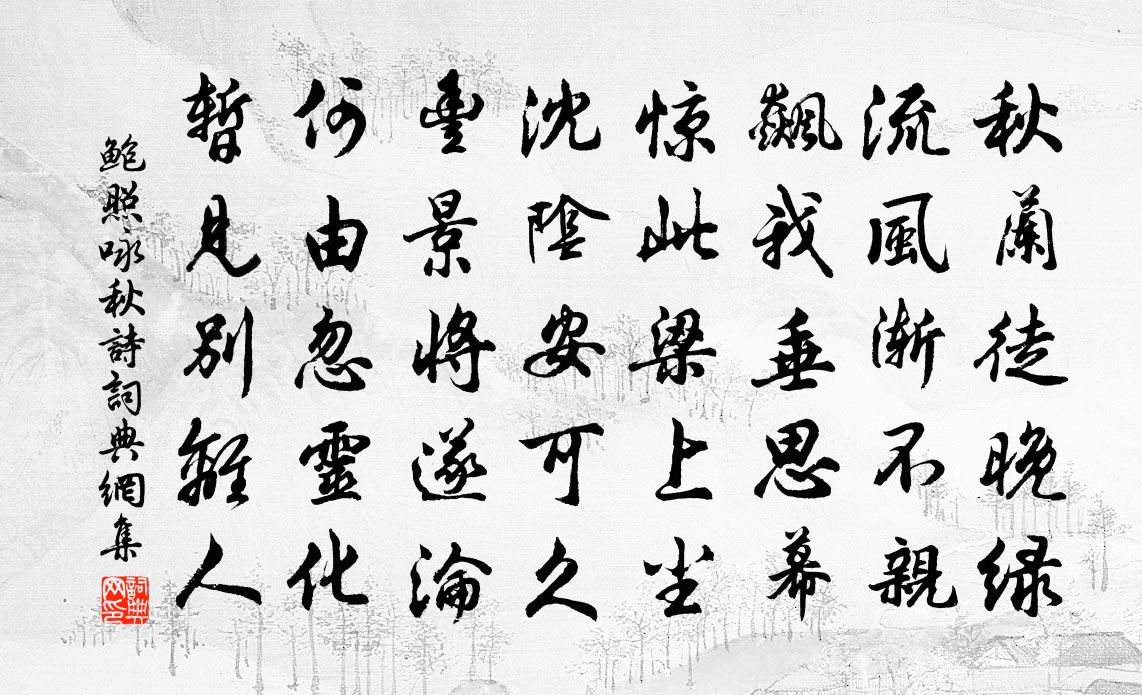 秋蘭徒晚緑
流風漸不親
飆我垂思幕
惊此梁上尘
沈陰安可久
豊景将遂淪
何由忽靈化
暫見别離人
鮑照咏秋詩詞典網集
詞典網印